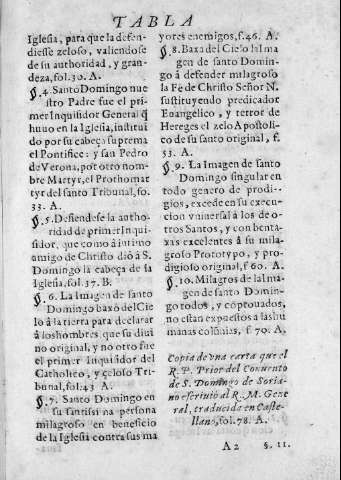 TABLA
Iglesia, para que la defen-
diesse zeloso, valiendose
de su authoridad, y gran-
deza, fol. 30. A.
§. 4. Santo Domingo nue
stro Padre fue el pri-
mer Inquisidor General q̃
huuo en la Iglesia, institui
do por su cabeça suprema
el Pontifice: y san Pedro
de Verona, por otro nom-
bre Martyr, el Prothomar
tyr del santo Tribunal, fo.
33. A.
§. 5. Desiendese la autho-
ridad de primer Inqui-
sidor, que como á intimo
amigo de Christo dió à S.
Domingo la cabeça de la
Iglesia, fol. 37. B.
§. 6. La Imagen de santo
Domingo baxó del Cie
lo á la tierra para declarar
á los hombres, que su diui
no original, y no otro fue
el primer Inquisidor del
Catholico, y zeloso Tri-
bunal, fol. 43 A.
§. 7. Santo Domingo en
su santissima persona
milagroso en beneficio
de la Iglesia contra sus ma
yores enemigos, f. 46. A.
§. 8. Baxa del Cielo la Ima
gen de santo Domin-
go à defender milagroso
la Fè de Christo Señor N.
sustituyendo predicador
Euangelico, y terror de
Hereges el zelo Apostoli-
co de su santo original, f.
53. A.
§. 9. La Imagen de santo
Domingo singular en
todo genero de prodi-
gios, excede en su execu-
cion vniuersal à los de o-
tros Santos, y con benta-
xas excelentes á su mila-
groso Prototypo, y pro-
digioso original, f. 60. A.
§. 10. Milagros de la Ima
gen de santo Domin-
go todos, y coprouados,
no estan expuestos a las hu
manas colũnias, f. 70. A.
Copia de vna carta que el
R. P. Prior del Conuento
de S. Domingo de Soria-
no escriuió al R. M. Gene
ral, traducida en Caste-
llano, fol. 78. A.
A2 §. 11.